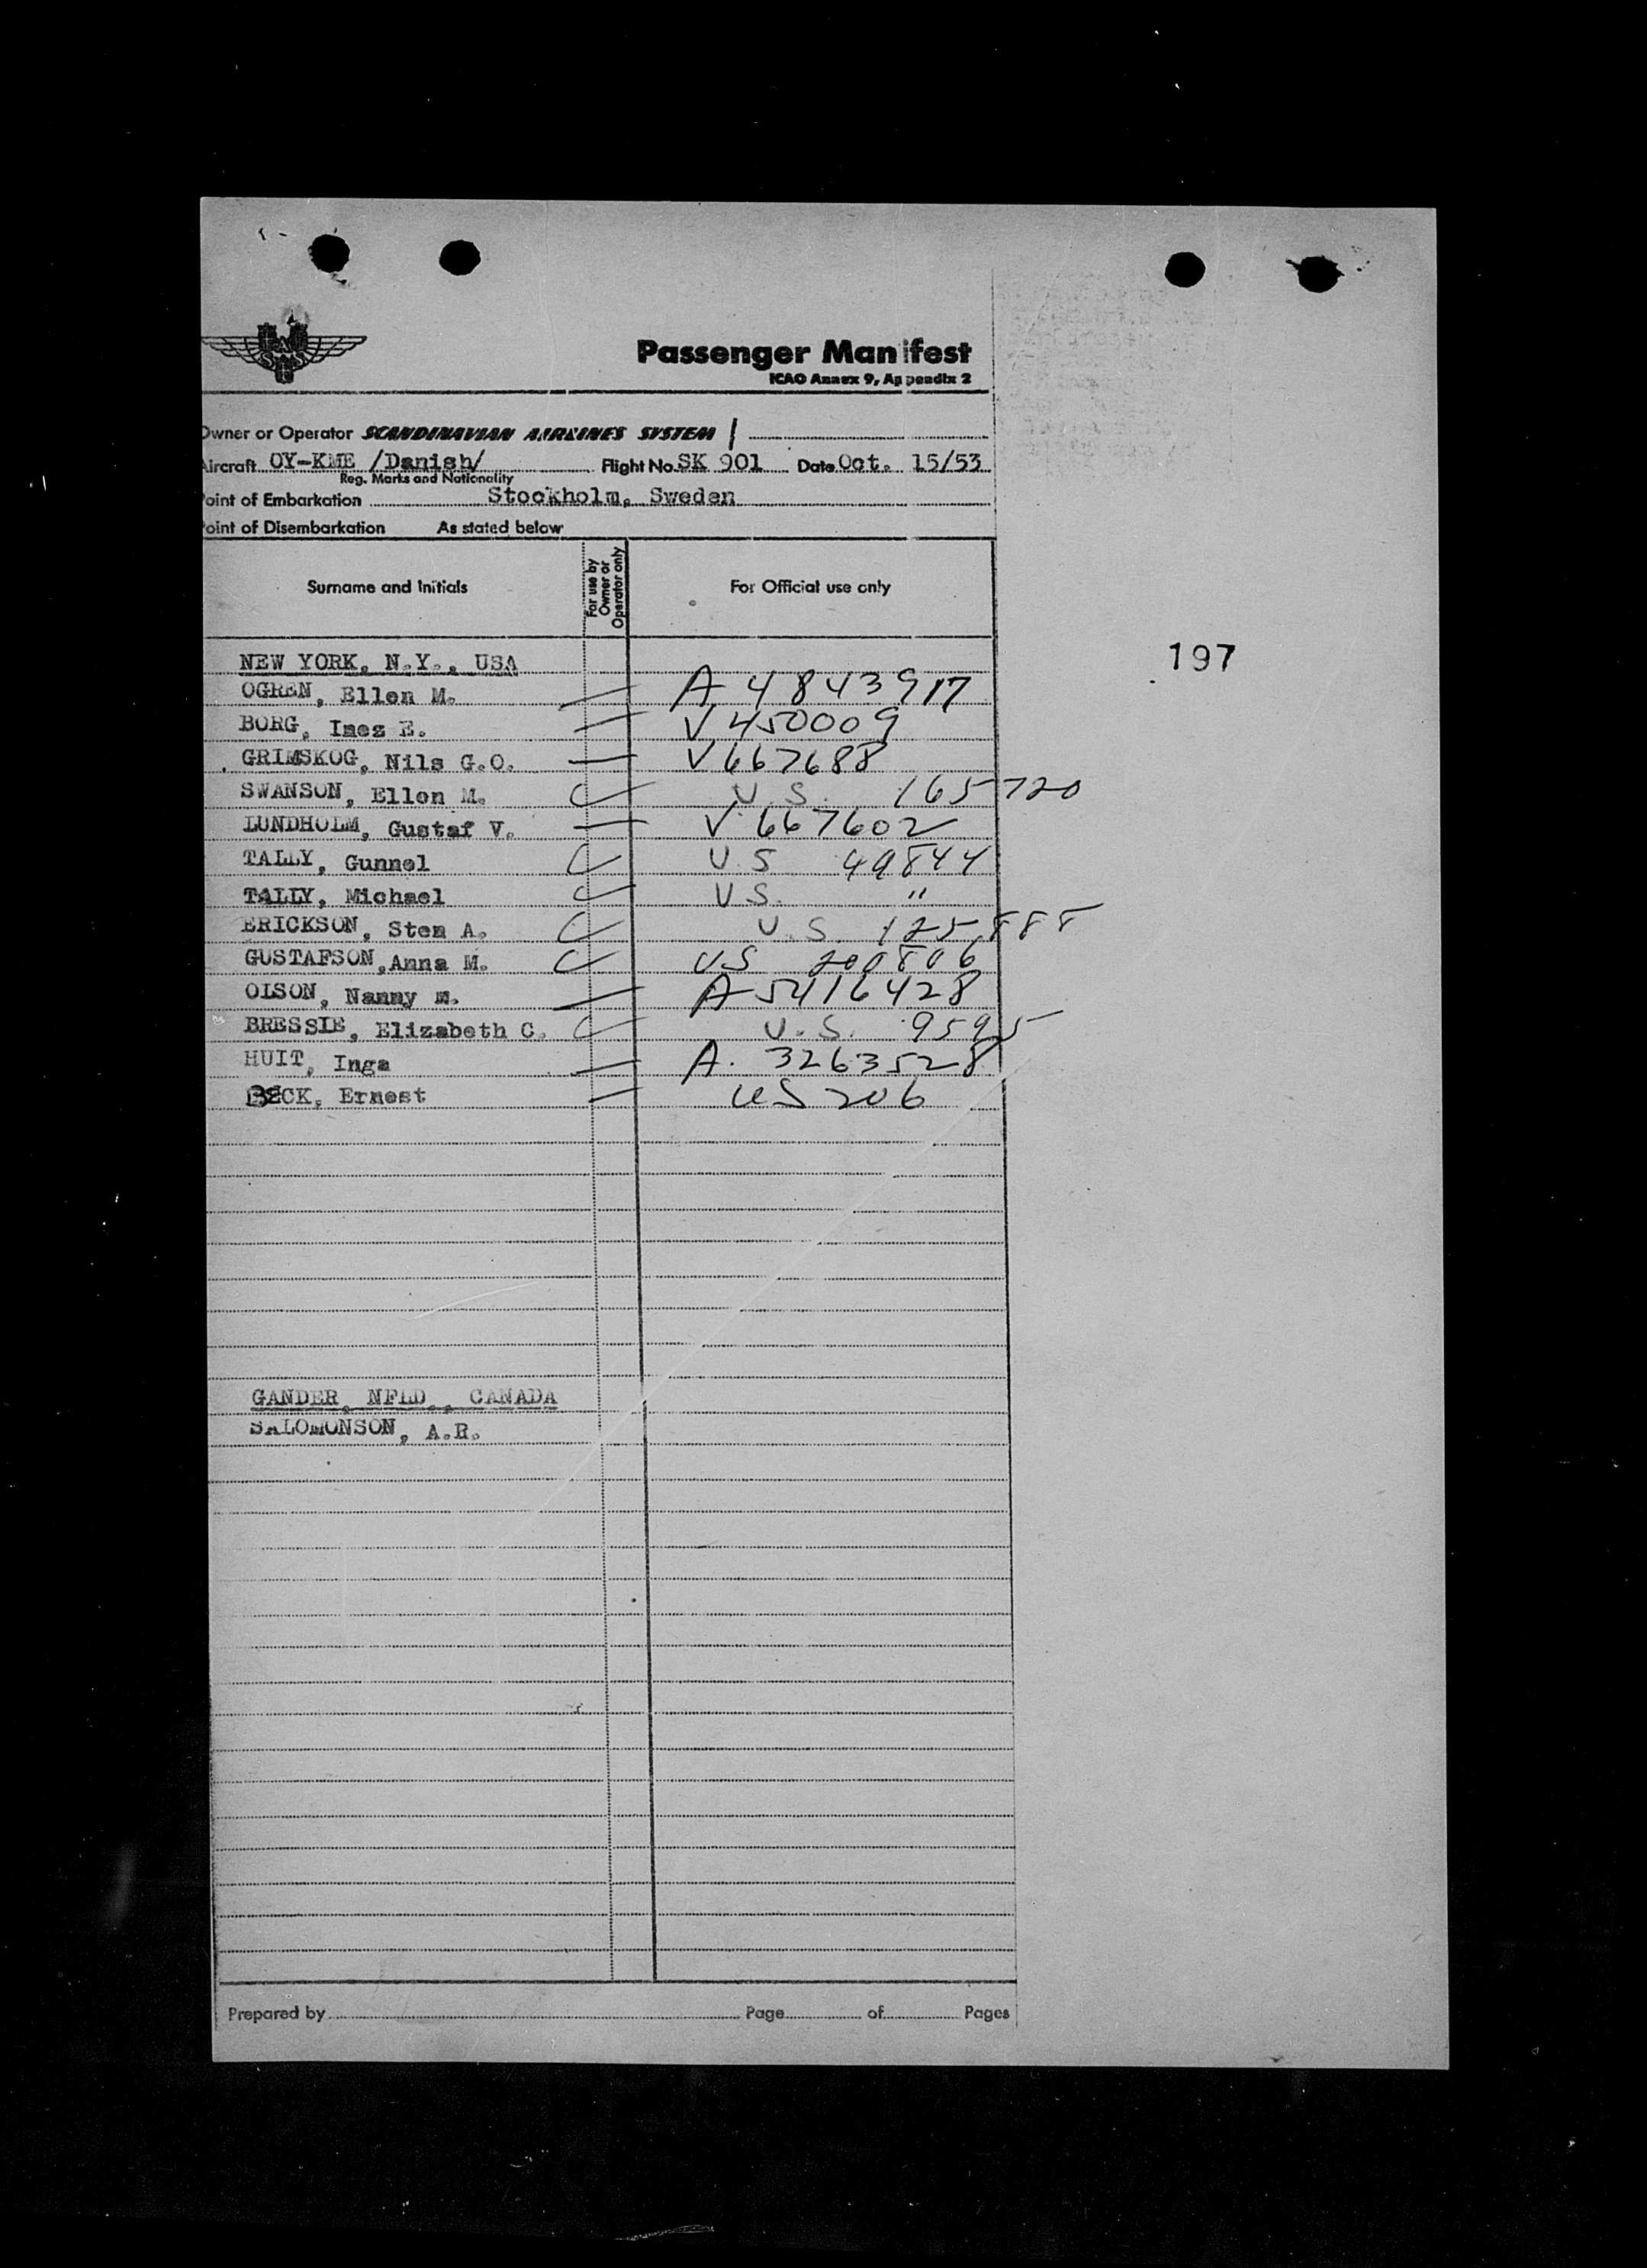 Passenger Manifest
ICAO Annex 9, Appendix 2
Owner or Operator SCANDINAVIAN AIRLINES SYSTEM
Aircraft OY-KME /Danish/ Flight No. SK 901 Date Oct. 15/53
Reg. Marks and Nationality
Point of Embarkation Stockholm, Sweden
Point of Disembarkation As stated below
Surname and Initials For use by Owner or Operator only For Official use only
NEW YORK, N.Y., USA
197
OGREN, Ellen M. — A 4843917
BORG, Inez E. — V 450009
GRIMSKOG, Nils G.O. — V 667688
SWANSON, Ellen M. C U.S. 165720
LUNDHOLM, Gustaf V. — V 667602
TALLY, Gunnel C U.S 49844
TALLY, Michael C U.S. "
ERICKSON, Sten A. C U.S. 125888
GUSTAFSON, Anna M. C US 200806
OLSON, Nanny M. — A 5416428
BRESSIE, Elizabeth C. C U.S. 9595
HUIT, Inga — A. 3263528
BECK, Ernest — US 206
GANDER, NFLD., CANADA
SALOMONSON, A.R.
Prepared by Page of Pages